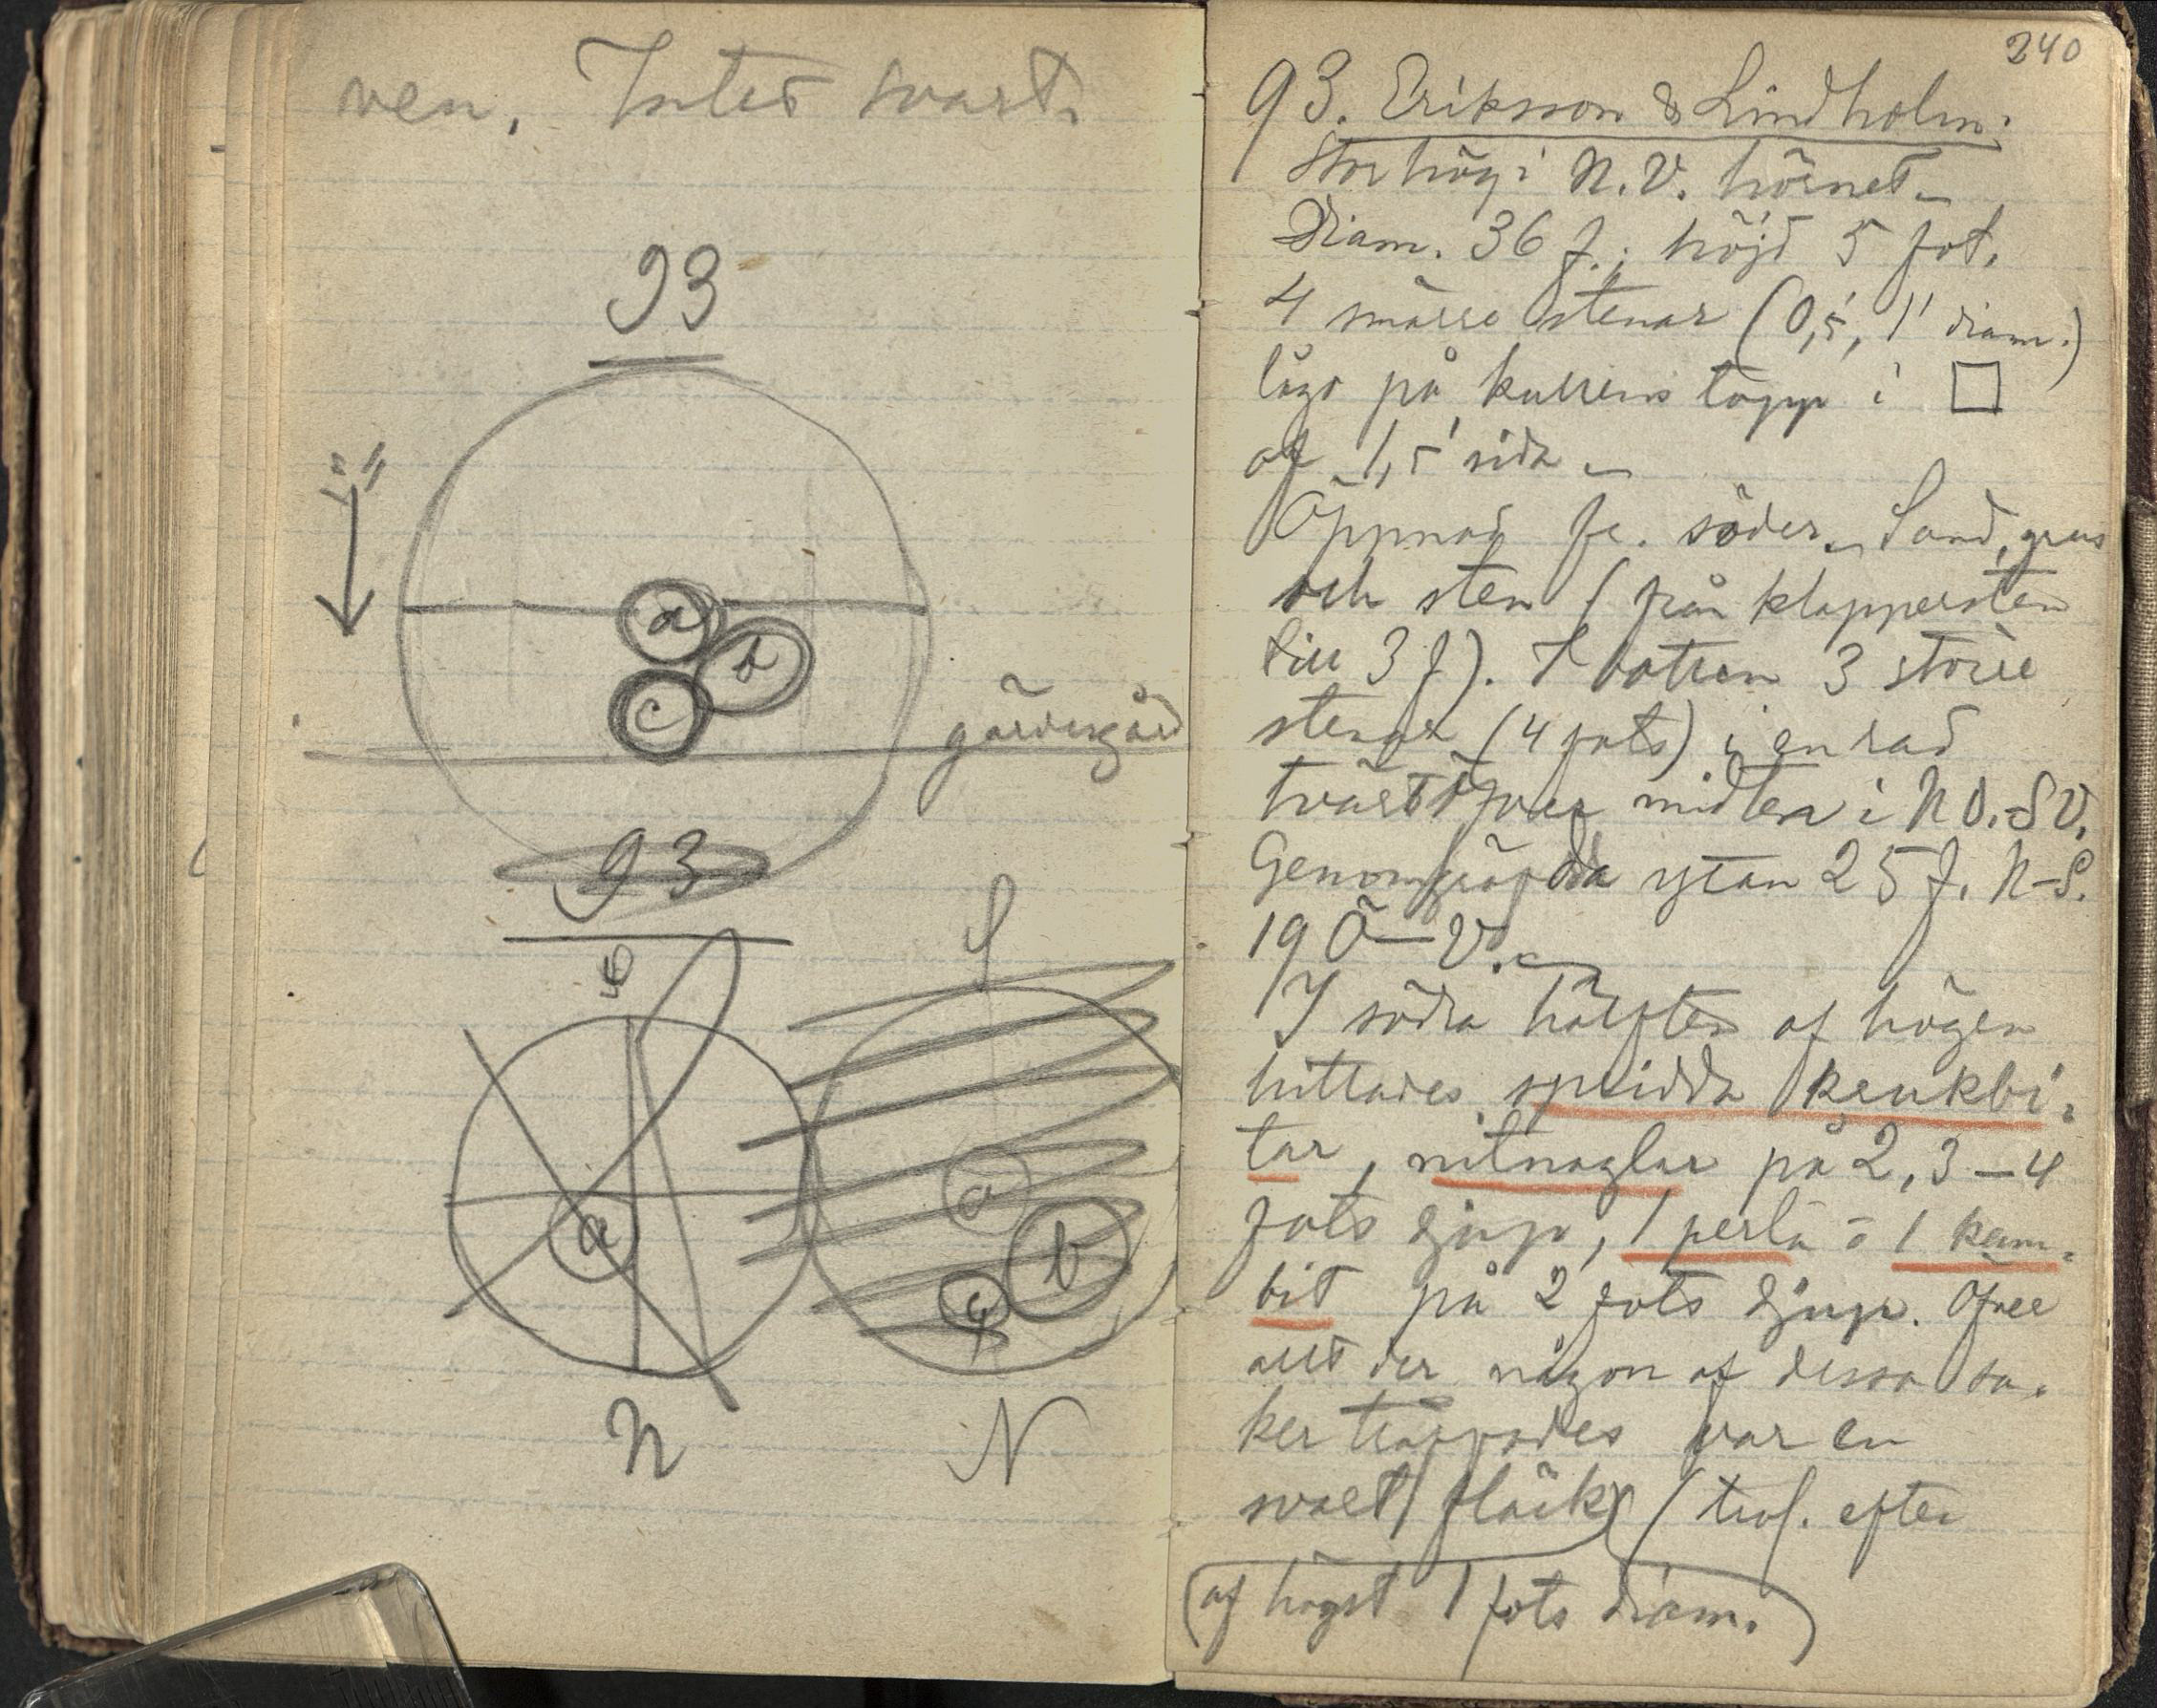 ven. Intet svart.
93
a
b
c
gärdesgård
93
S
a
a
b
c
N
N
240
93. Eriksson & Lindholm.
Stor hög i N.V. hörnet.
Diam. 36 f.; höjd 5 fot.
4 smärre stenar (0,5, 1' diam.)
lågo på kullens topp i □
af 1,5' sida.
Öppnad fr. söder. Sand, grus
och sten (från klappersten
till 3 f). I botten 3 större
stenar (4 fots) i en rad
tvärtöfver midten i NO.-SV.
Genomgräfda ytan 25 f. N-S.
19 Ö-V.
I södra hälften af högen
hittades spridda krukbi-
tar, nitnaglar på 2, 3-4
fots djup, 1 perla o 1 kam-
bit på 2 fots djup. Öfver
allt der någon af dessa sa-
ker träffades var en
svart fläck (trol. efter
af högst 1 fots diam.